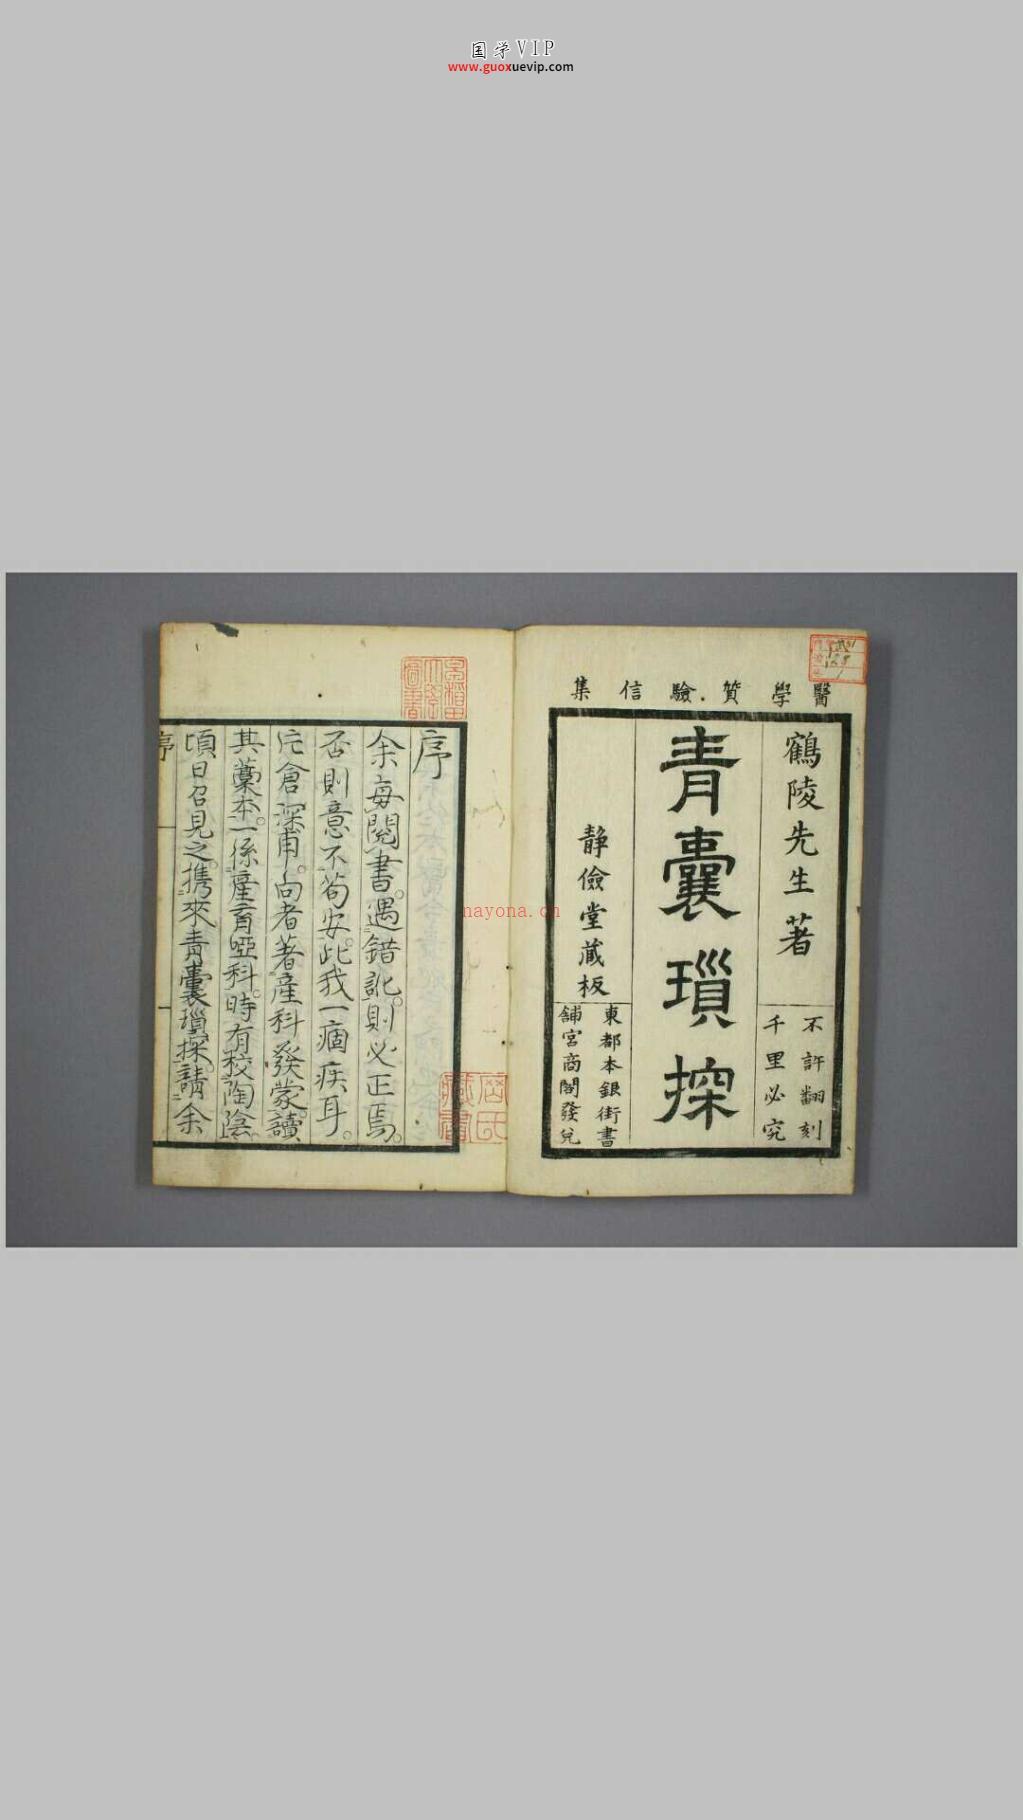 国学VIP
www.guoxuevip.com
醫學質驗信集
鶴陵先生著
不許翻刻
千里必究
青囊瑣探
靜儉堂蔵板
東都本銀街書
舖宮商閣發兌
序
余每閱書遇錯訛則必正焉
否則意不苟安此我一痼疾耳
片倉深甫向者著產科發蒙讀
其藁本一係產育啞科時有校陶陰
頃日召見之携來青囊瑣探請余
序
早稻田大學圖書
藏書
nayona.cn